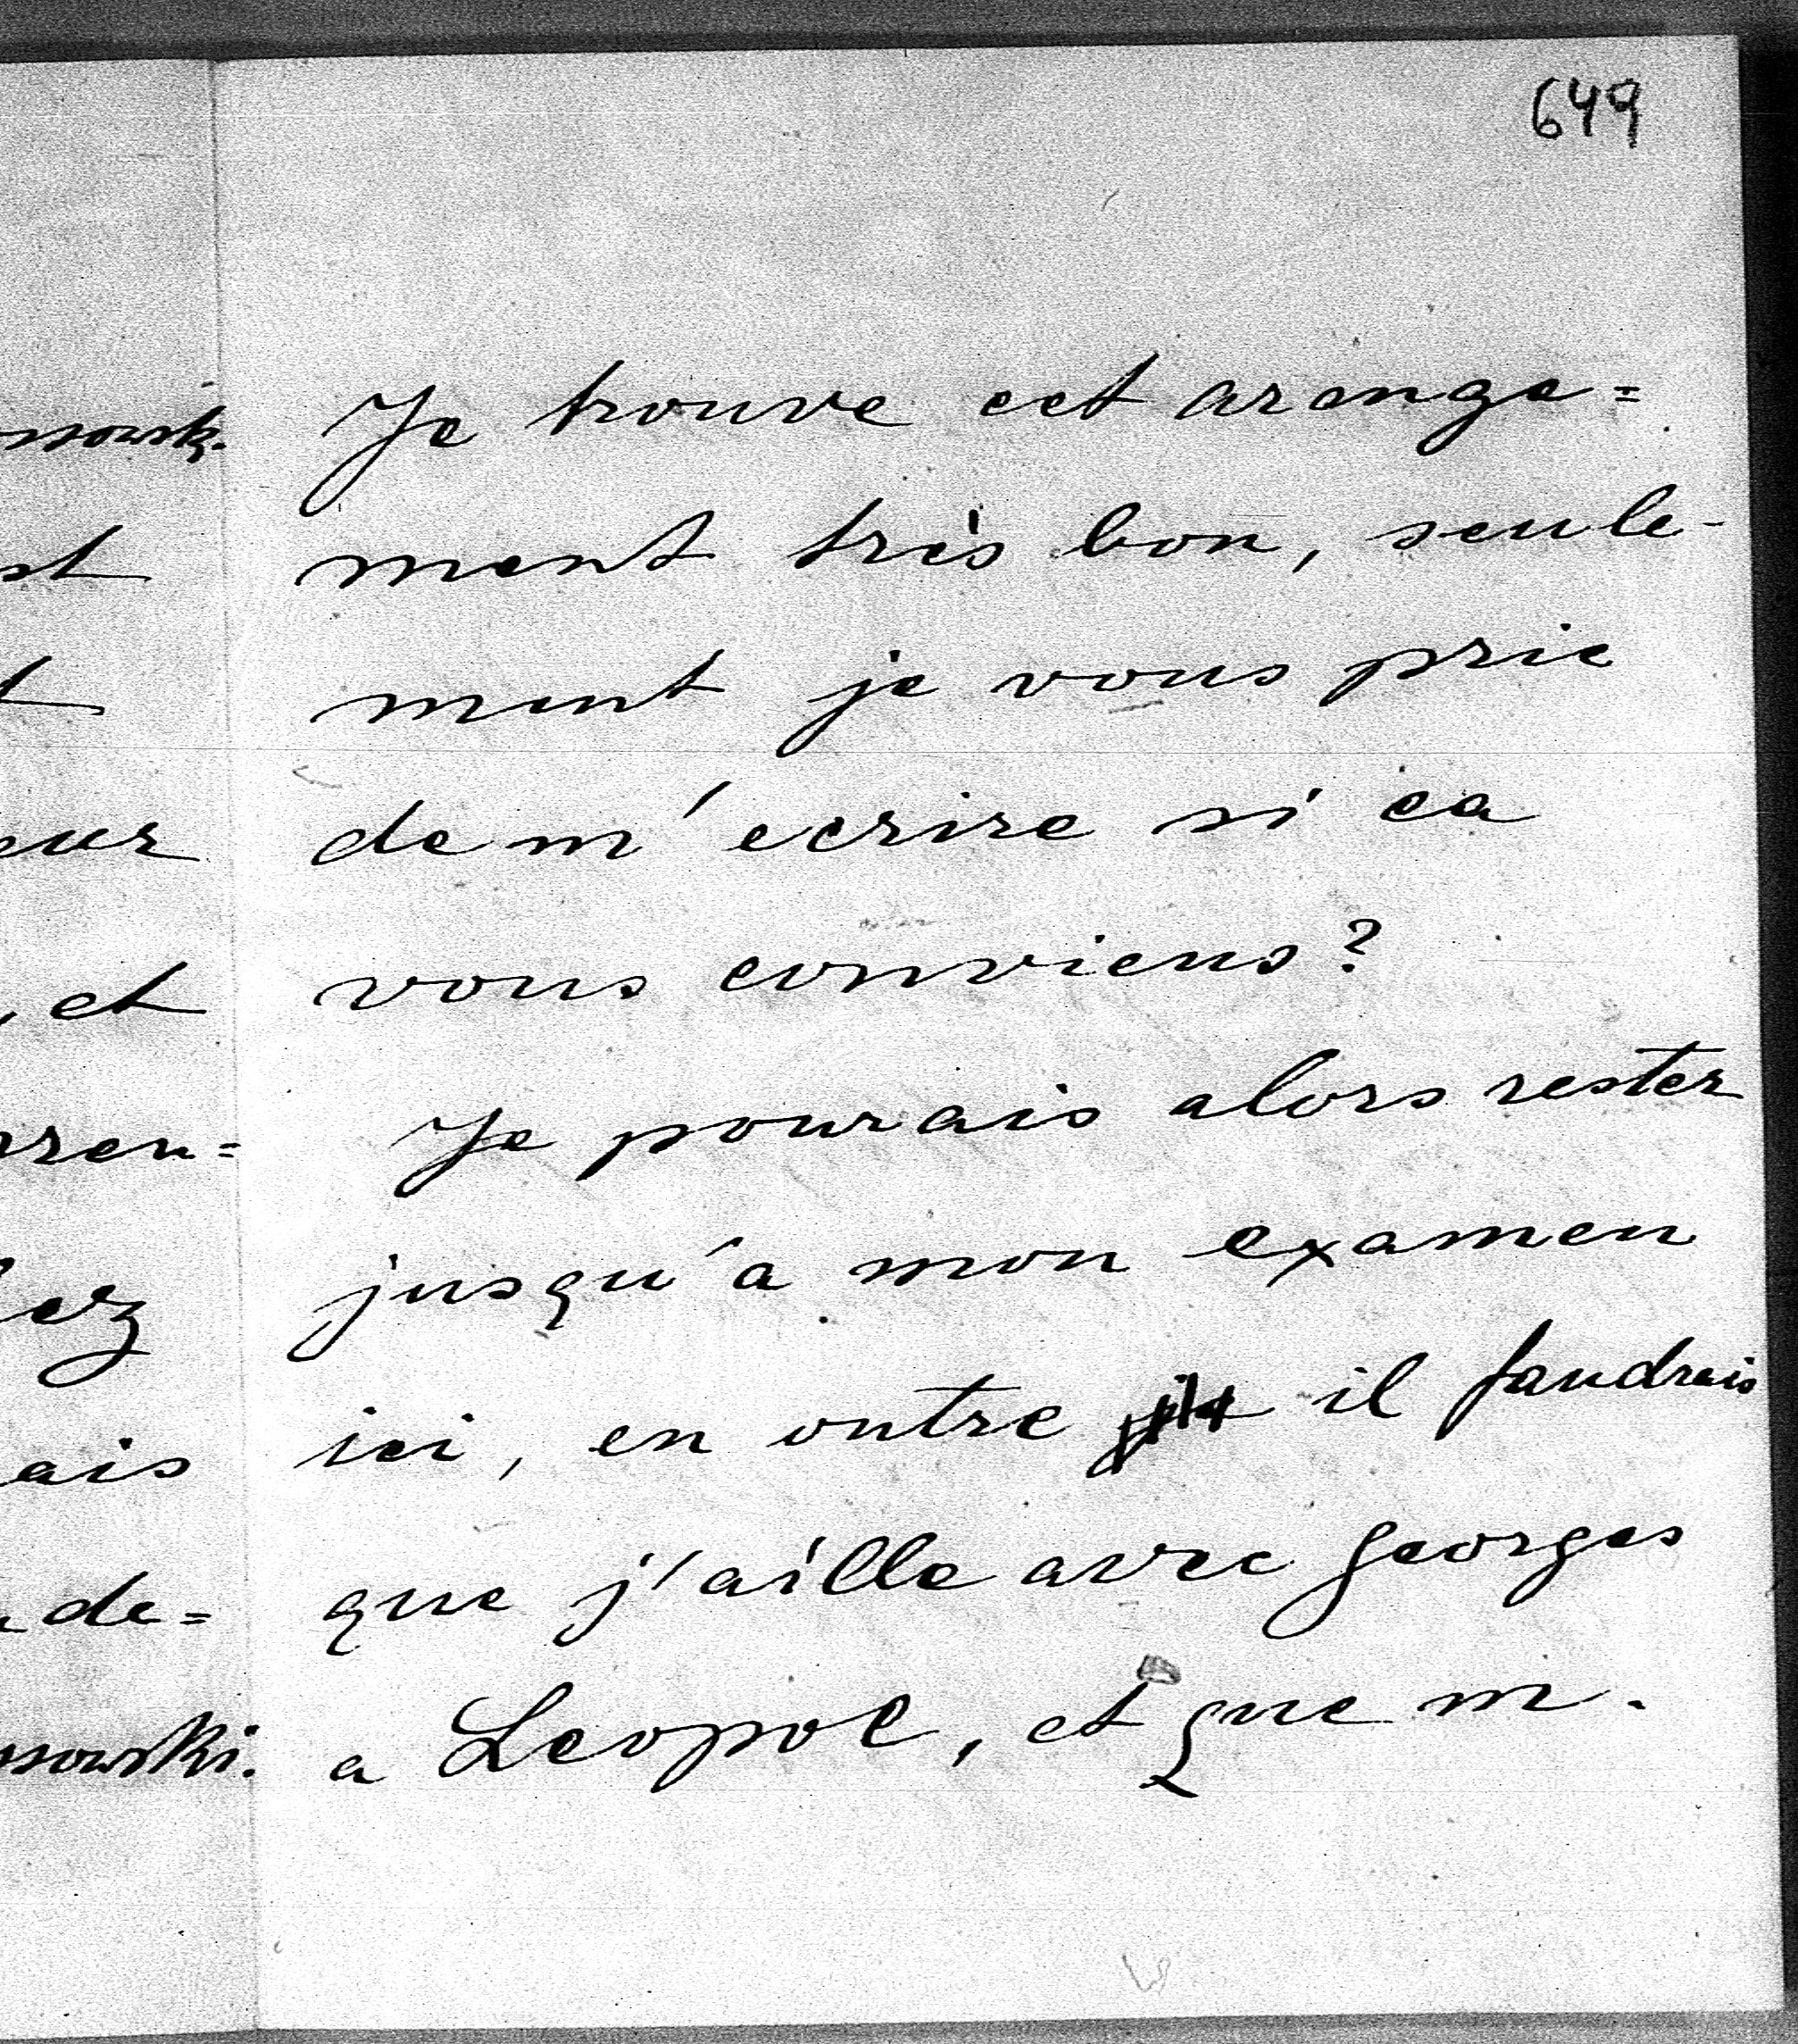 649
Je trouve cet arenge=
ment très bon, seule-
ment je vous prie
de m'ecrire si ca
vous conviens?
Je pourais alors rester
jusqu'a mon examen
ici, en outre il faudrais
que j'aille avec Georges
a Leopol, et que m.